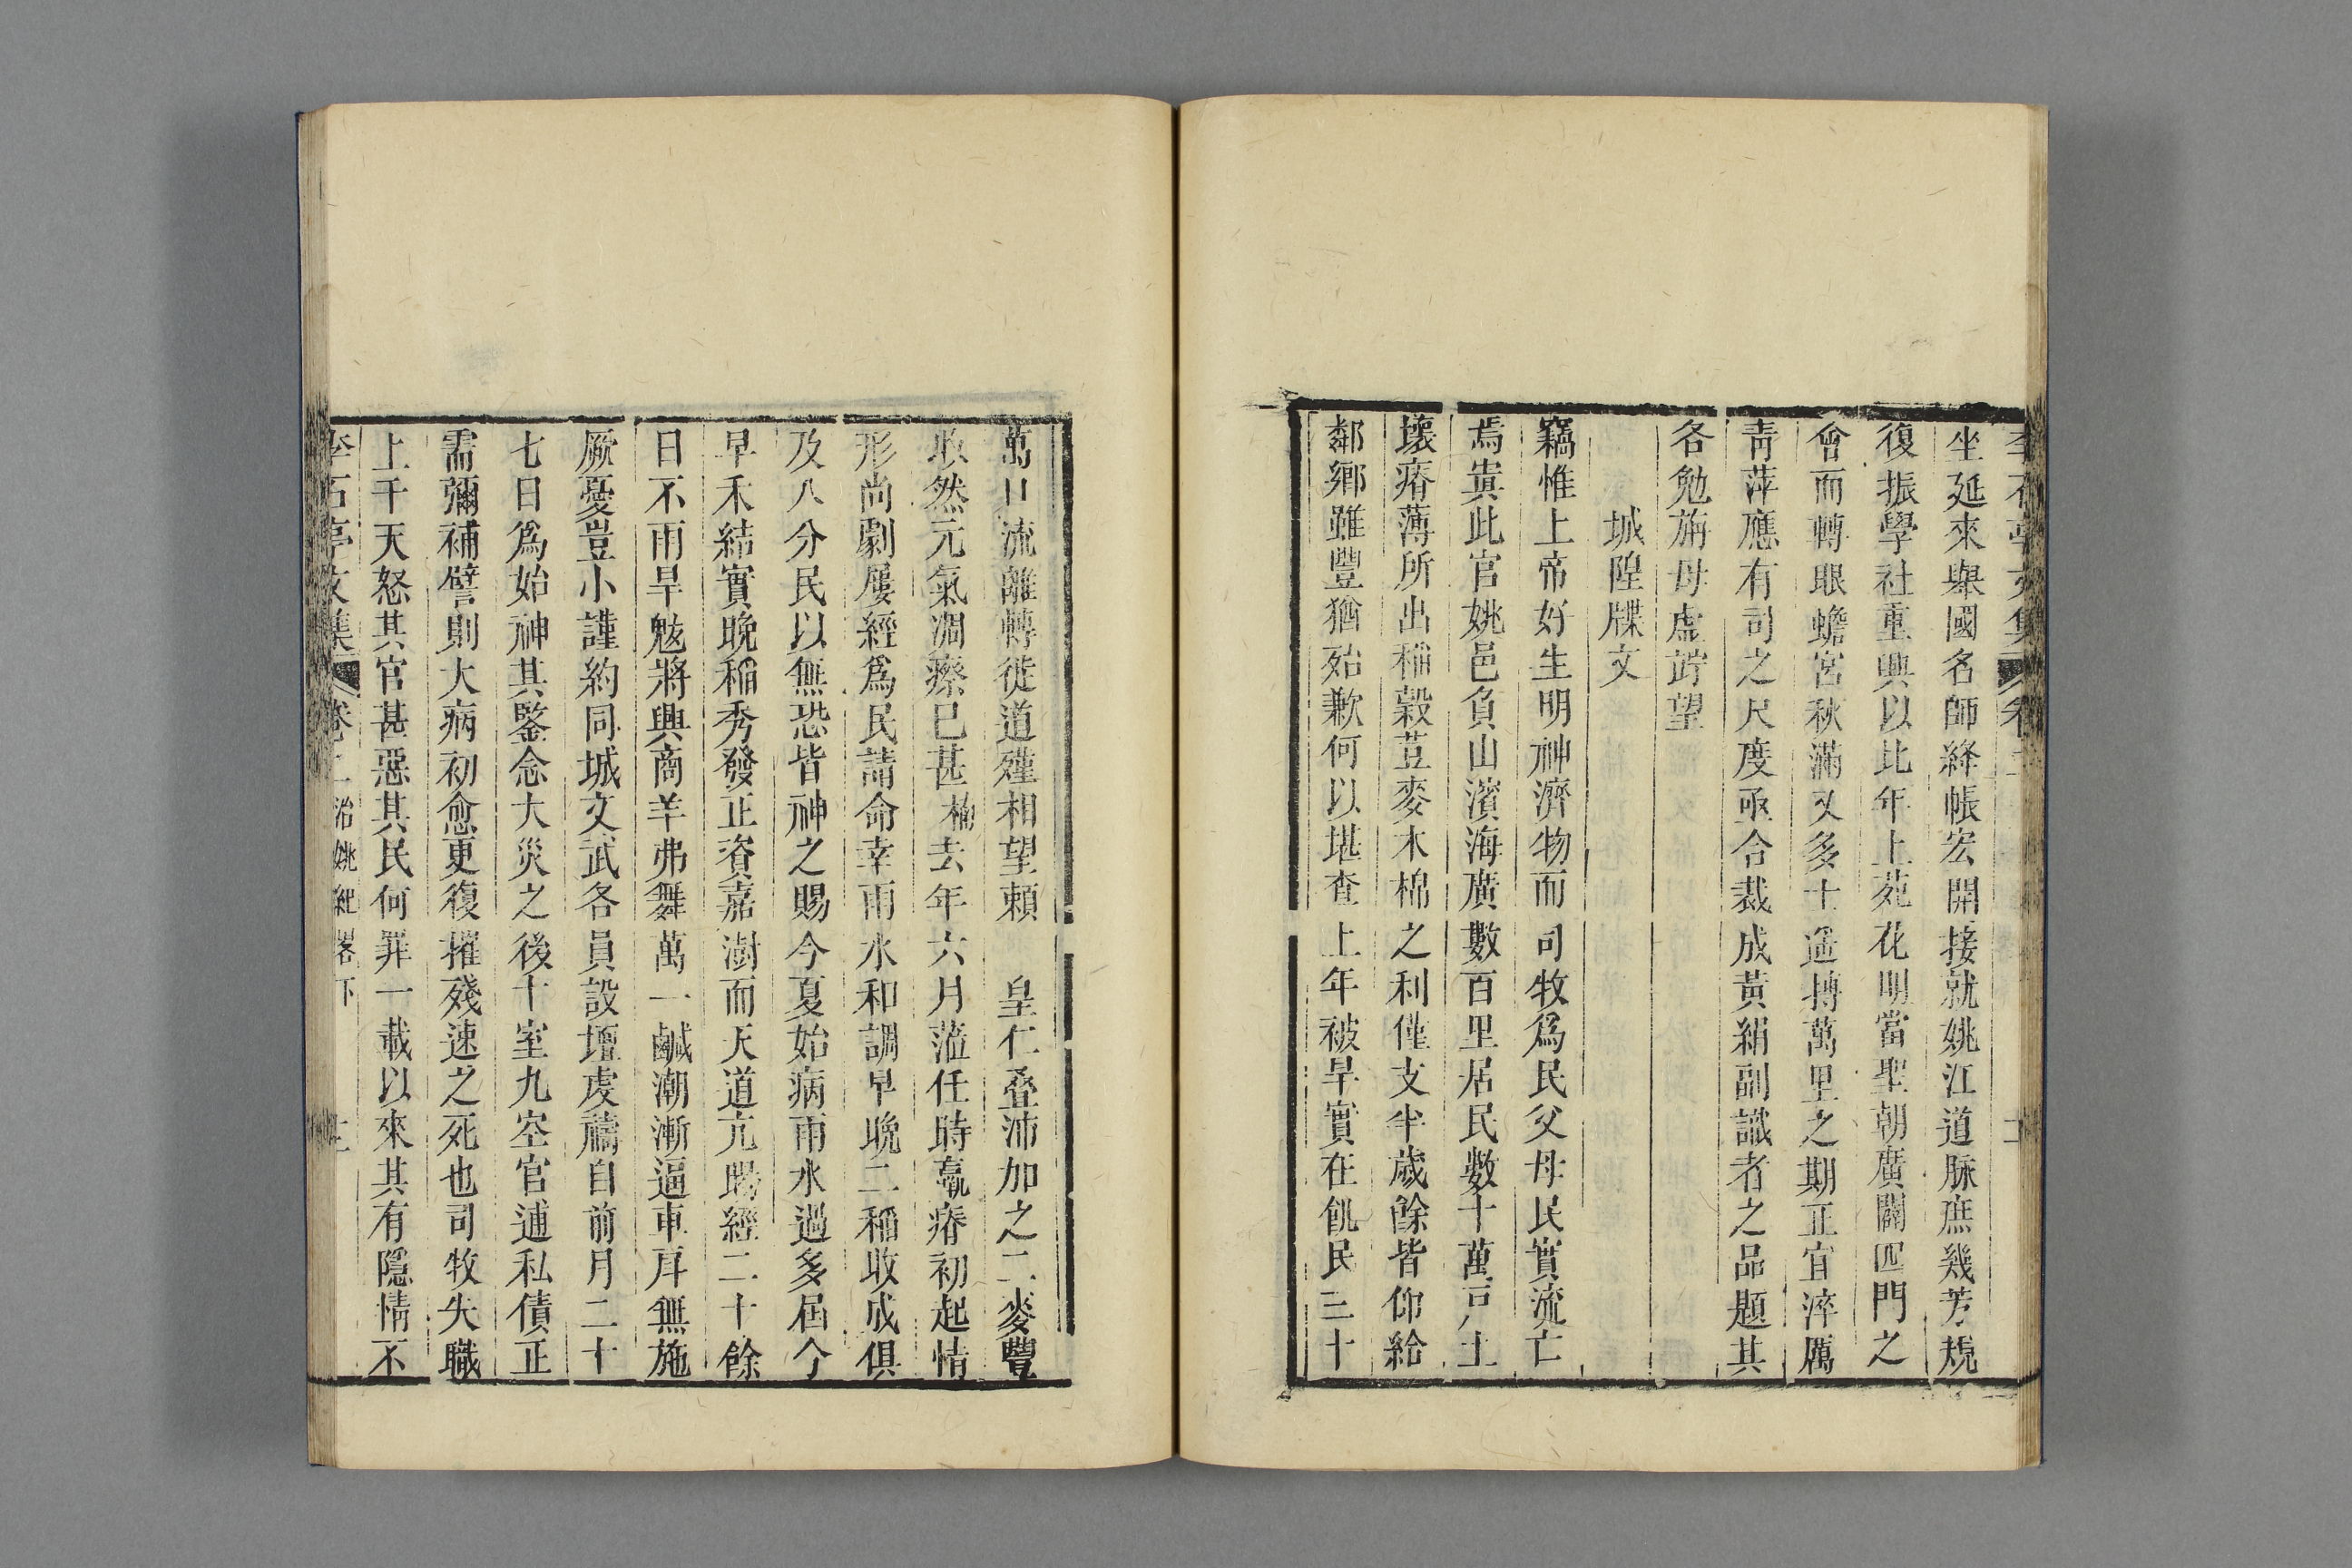 李石亭文集 卷二
坐延來舉國名師絳帳宏開接就姚江道脉庶幾芳規
復振學社重興以比年上苑花明當聖朝廣闢四門之
會而轉眼蟾宮秋滿又多士遥摶萬里之期正宜淬厲
靑萍應有司之尺度亟合裁成黃絹副識者之品題其
各勉旃毋虛跂望
城隍牒文
竊惟上帝好生明神濟物而司牧爲民父母民實流亡
焉貴此官姚邑負山濱海廣數百里居民數十萬戸土
壤瘠薄所出稲穀荳麥木棉之利僅支半歲餘皆仰給
鄰鄉雖豐猶殆歉何以堪查上年被旱實在飢民三十
萬口流離轉徙道殣相望頼　皇仁叠沛加之二麥豐
收然元氣凋瘵已甚楠去年六月蒞任時羸瘠初起情
形尚劇屢經爲民請命幸雨水和調早晚二稲收成俱
及八分民以無恐皆神之賜今夏始病雨水過多屆今
早禾結實晚稲秀發正資嘉澍而天道亢暘經二十餘
日不雨旱魃將興商羊弗舞萬一鹹潮漸逼車戽無施
厥憂豈小謹約同城文武各員設壇虔禱自前月二十
七日爲始神其鑒念大災之後十室九空官逋私債正
需彌補譬則大病初愈更復摧殘速之死也司牧失職
上干天怒其官甚惡其民何罪一載以來其有隱情不
李石亭文集 卷二 治姚紀畧下 十二